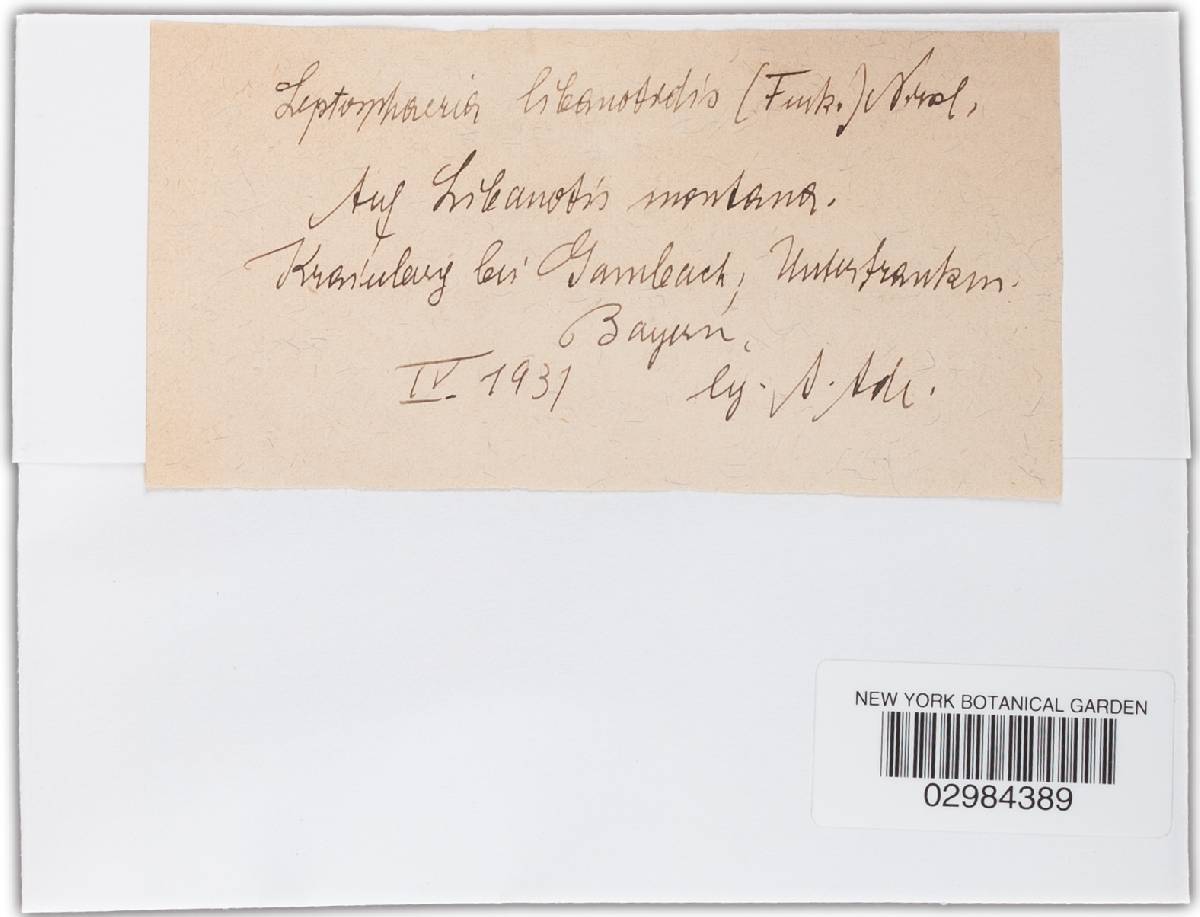 Leptosphaeria libanotidis (Fuck.) Niessl.
Auf Libanotis montana.
Krainberg bei Gambach, Unterfranken.
Bayern,
IV. 1931 leg. A. Ade.
NEW YORK BOTANICAL GARDEN
02984389